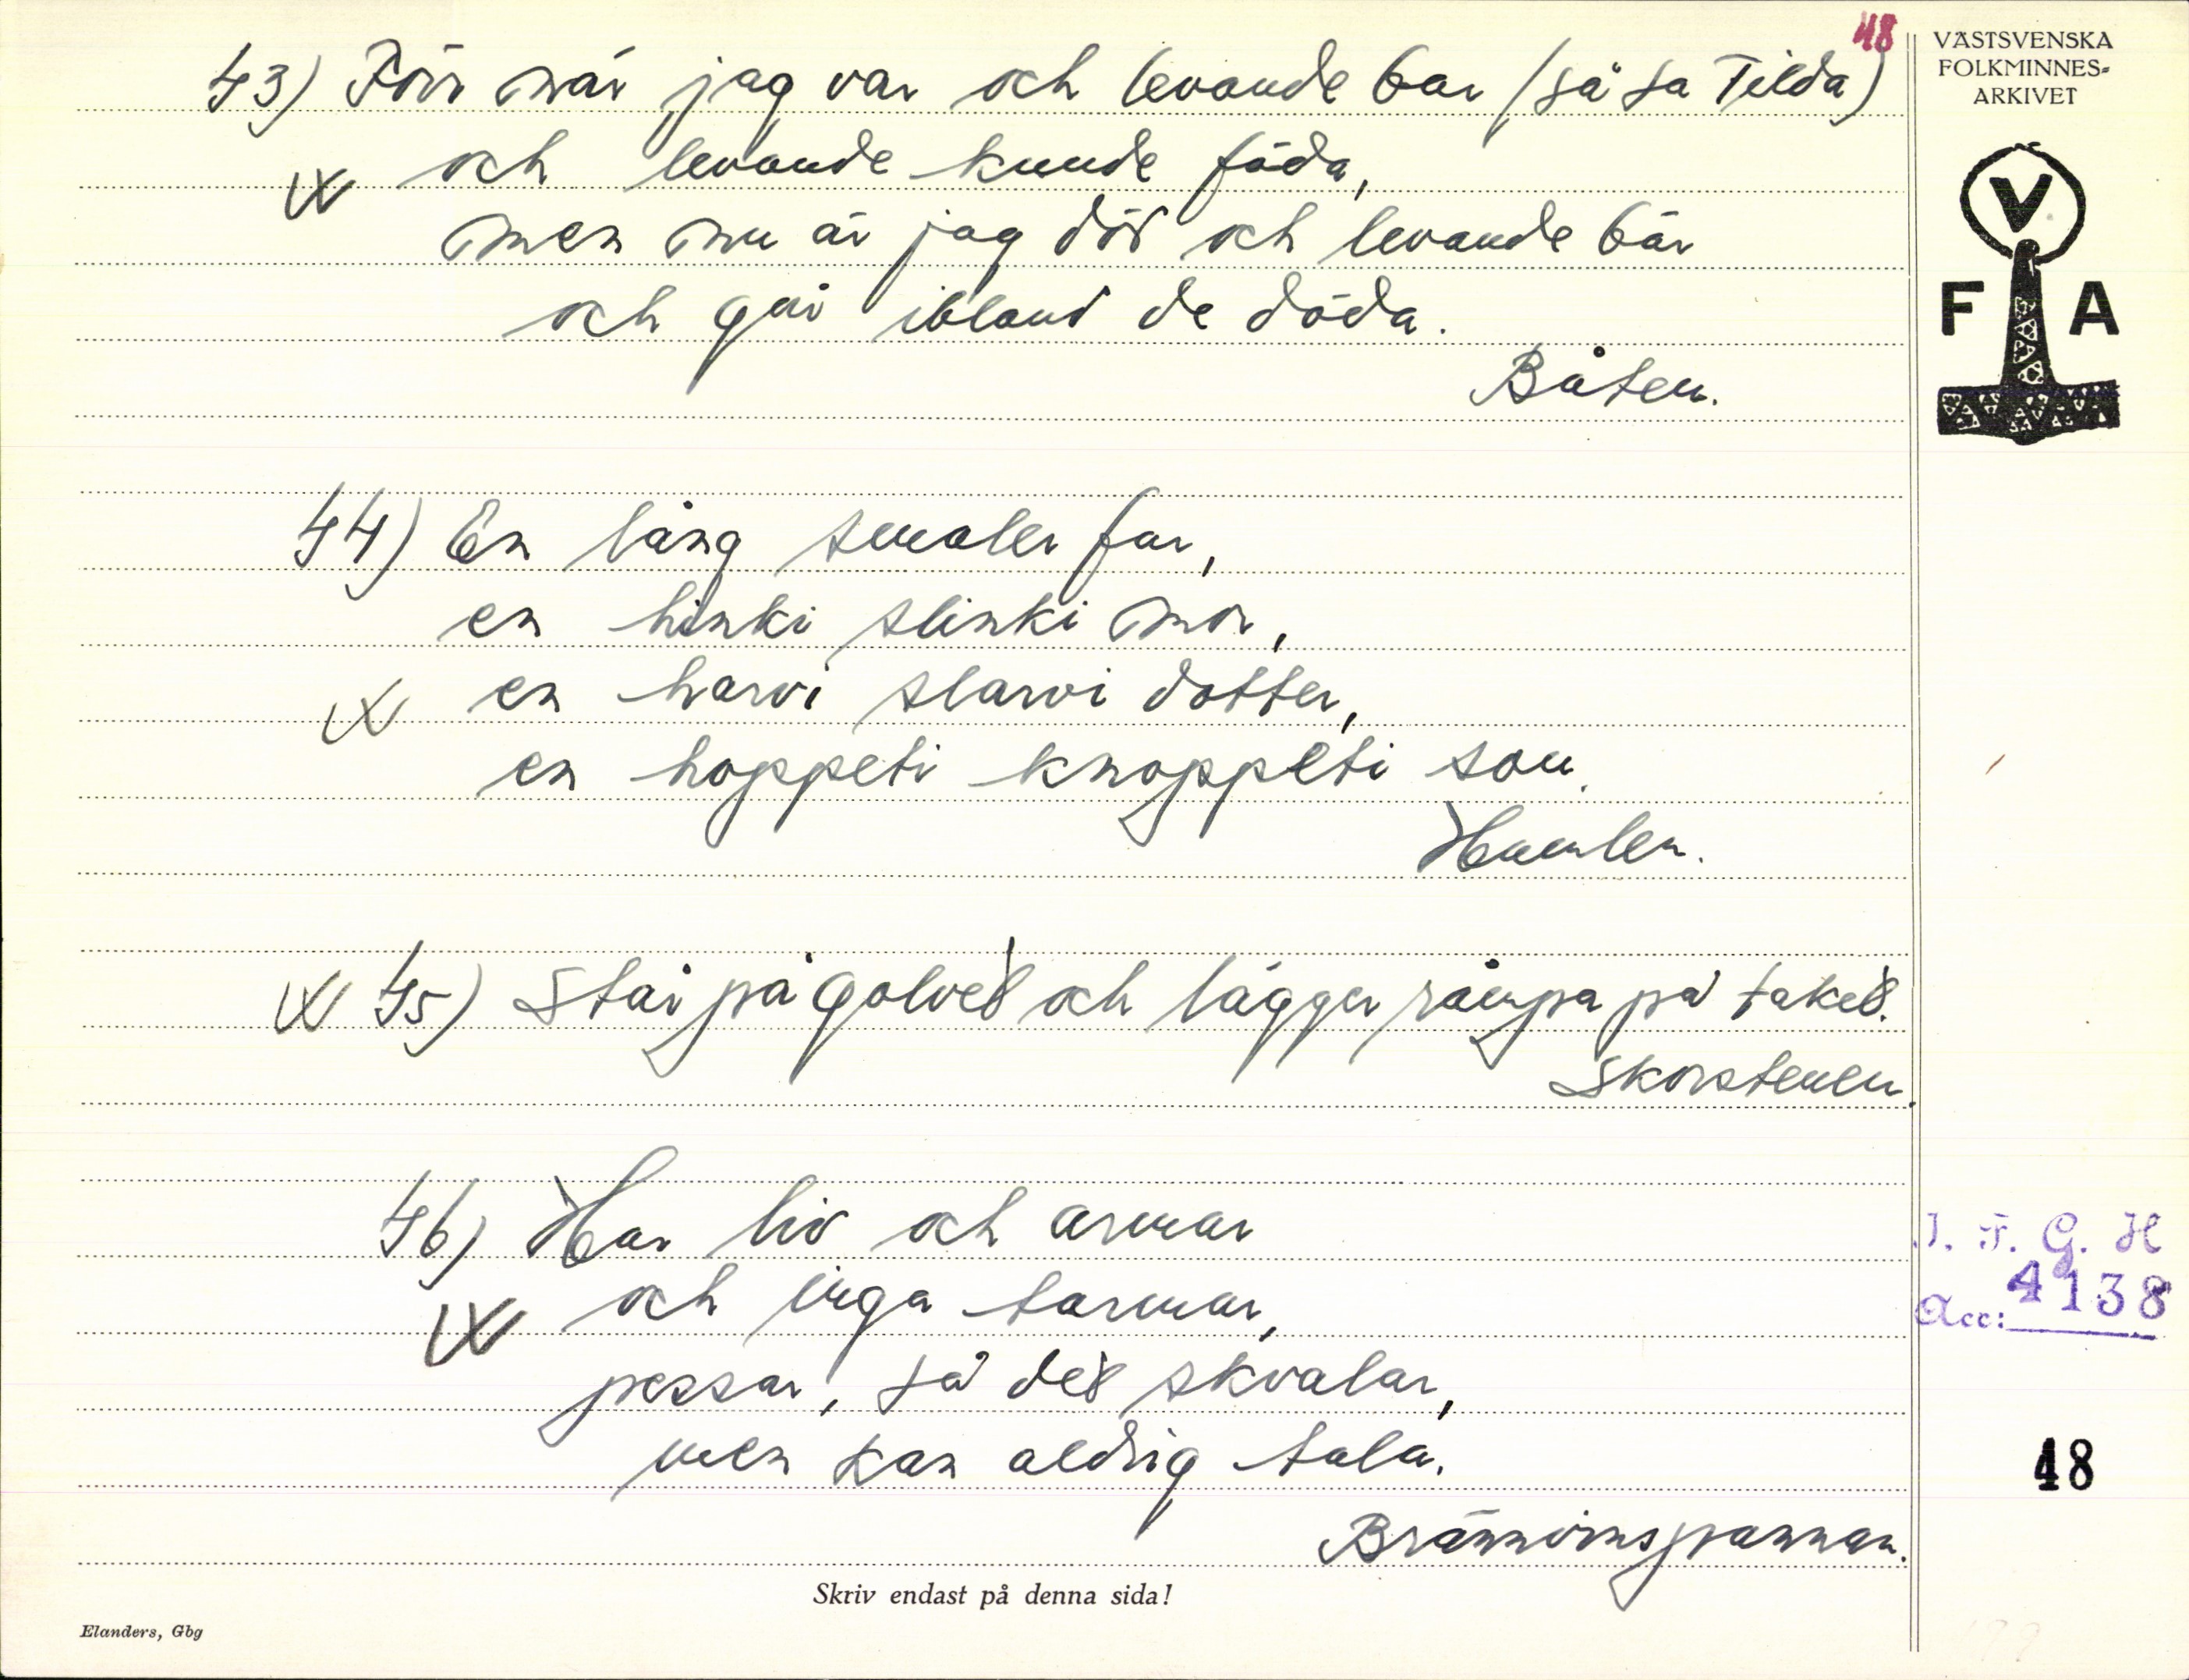 48
VÄSTSVENSKA
FOLKMINNES-
ARKIVET
V
F A
43) Förr när jag var och levande bar (så sa Tilda)
och levande kunde föda,
men nu är jag död och levande bär
och går ibland de döda.
Båten.
44) En lång smaler far,
en hinki slinki mor,
en harvi slarvi dotter,
en hoppeti knoppeti son.
Humlen.
45) Står på golvet och lägger råmpa på taket.
Skorstenen.
46) Har liv och armar
och inga tarmar,
pessar, så det skvalar,
men kan aldrig tala.
Brännvinspannan.
I. F. G. H
Acc: 4138
48
Skriv endast på denna sida!
Elanders, Gbg